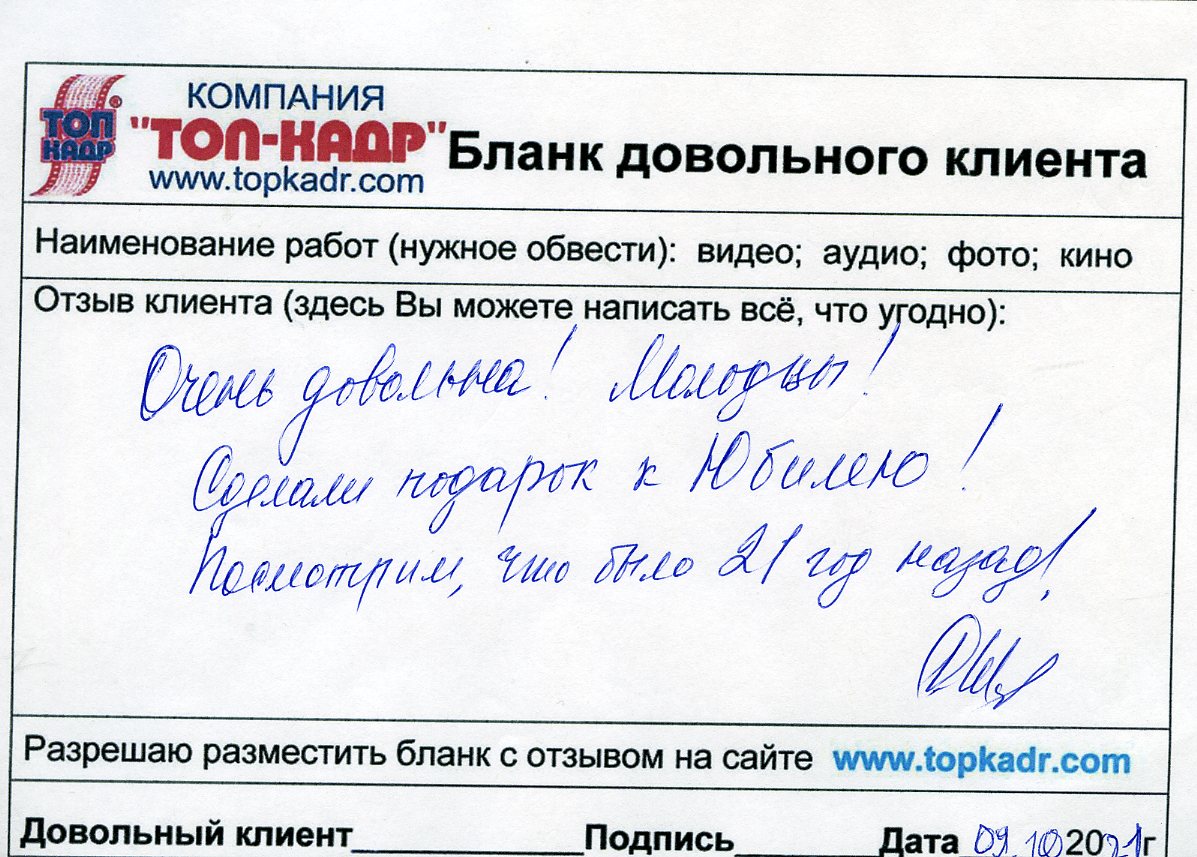 ТОП КАДР ®
КОМПАНИЯ
"ТОП-КАДР"
www.topkadr.com
Бланк довольного клиента
Наименование работ (нужное обвести): видео; аудио; фото; кино
Отзыв клиента (здесь Вы можете написать всё, что угодно):
Очень довольна! Молодцы!
Сделали подарок к Юбилею!
Посмотрим, что было 21 год назад!
Разрешаю разместить бланк с отзывом на сайте www.topkadr.com
Довольный клиент____________Подпись________Дата 09.10 2021г